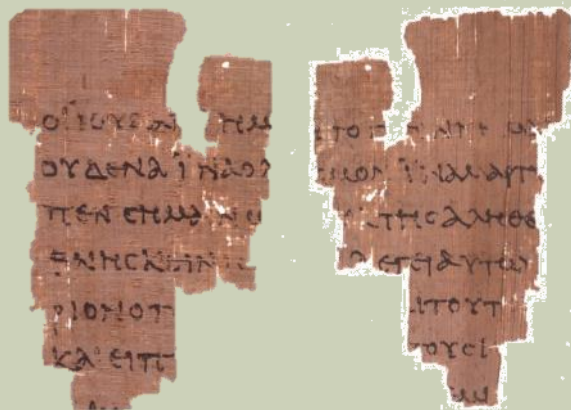 ΟΙΙΟΥΔΑΙ ΗΜ
ΟΥΔΕΝΑΪΝΑΟΛ
ΠΕΝϹΗΜΑΙΝΩ
ΘΝΗϹΚΕΙΝ
ΡΙΟΝΟΠ
ΚΑΙΕΙΠ
ϹΜΟΝΪΝΑΜΑΡΤ
ΤΗϹΑΛΗΘΕ
ΛΕΓΕΙΑΥΤΩ
ΑΙΤΟΥΤ
ΤΟΥϹΙ